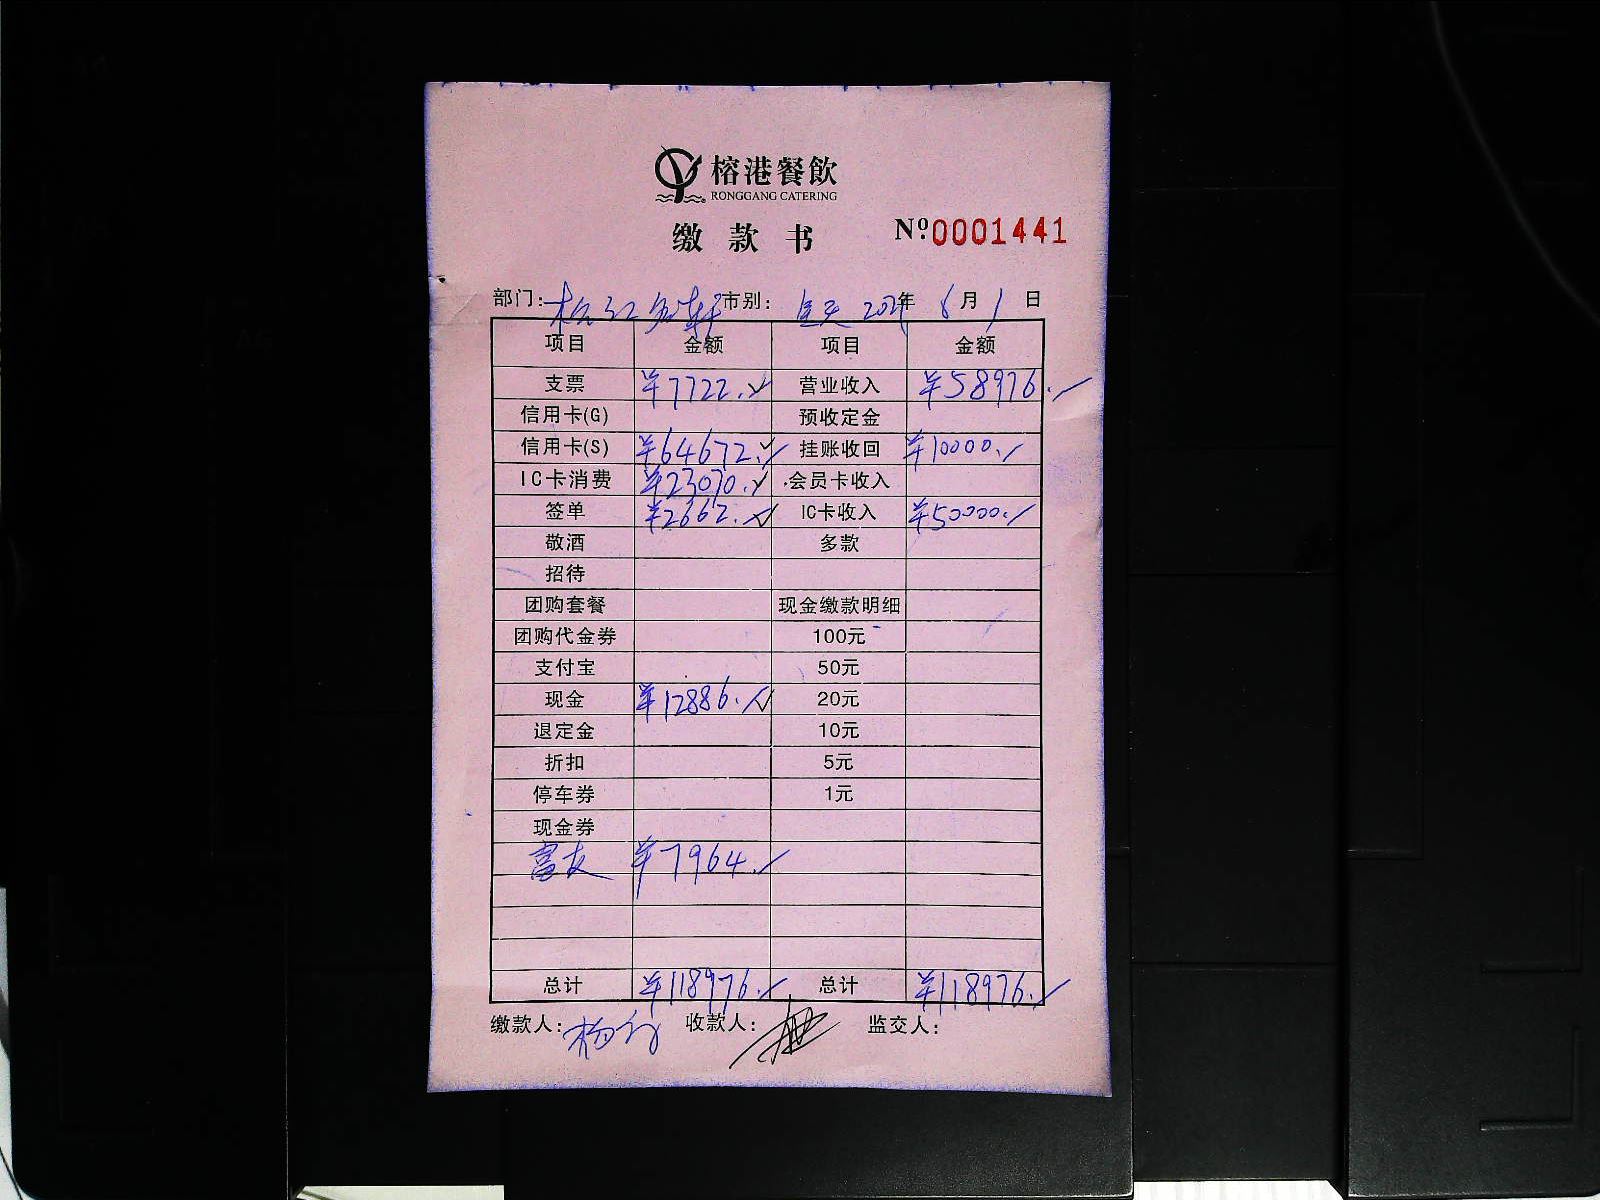 榕港餐飲
RONGGANG CATERING
缴款书 Nº:0001441
部门: 市别: 全天 年 6月1日
项目 金额 项目 金额
支票 ¥7722. 营业收入 ¥58976.
信用卡(G) 预收定金
信用卡(S) ¥64672. 挂账收回 ¥10000.
IC卡消费 ¥23070. 会员卡收入
签单 ¥2662. IC卡收入 ¥50000.
敬酒 多款
招待
团购套餐 现金缴款明细
团购代金券 100元
支付宝 50元
现金 ¥12886. 20元
退定金 10元
折扣 5元
停车券 1元
现金券
富友 ¥7964.
总计 ¥118976. 总计 ¥118976.
缴款人: 杨 收款人: 监交人: